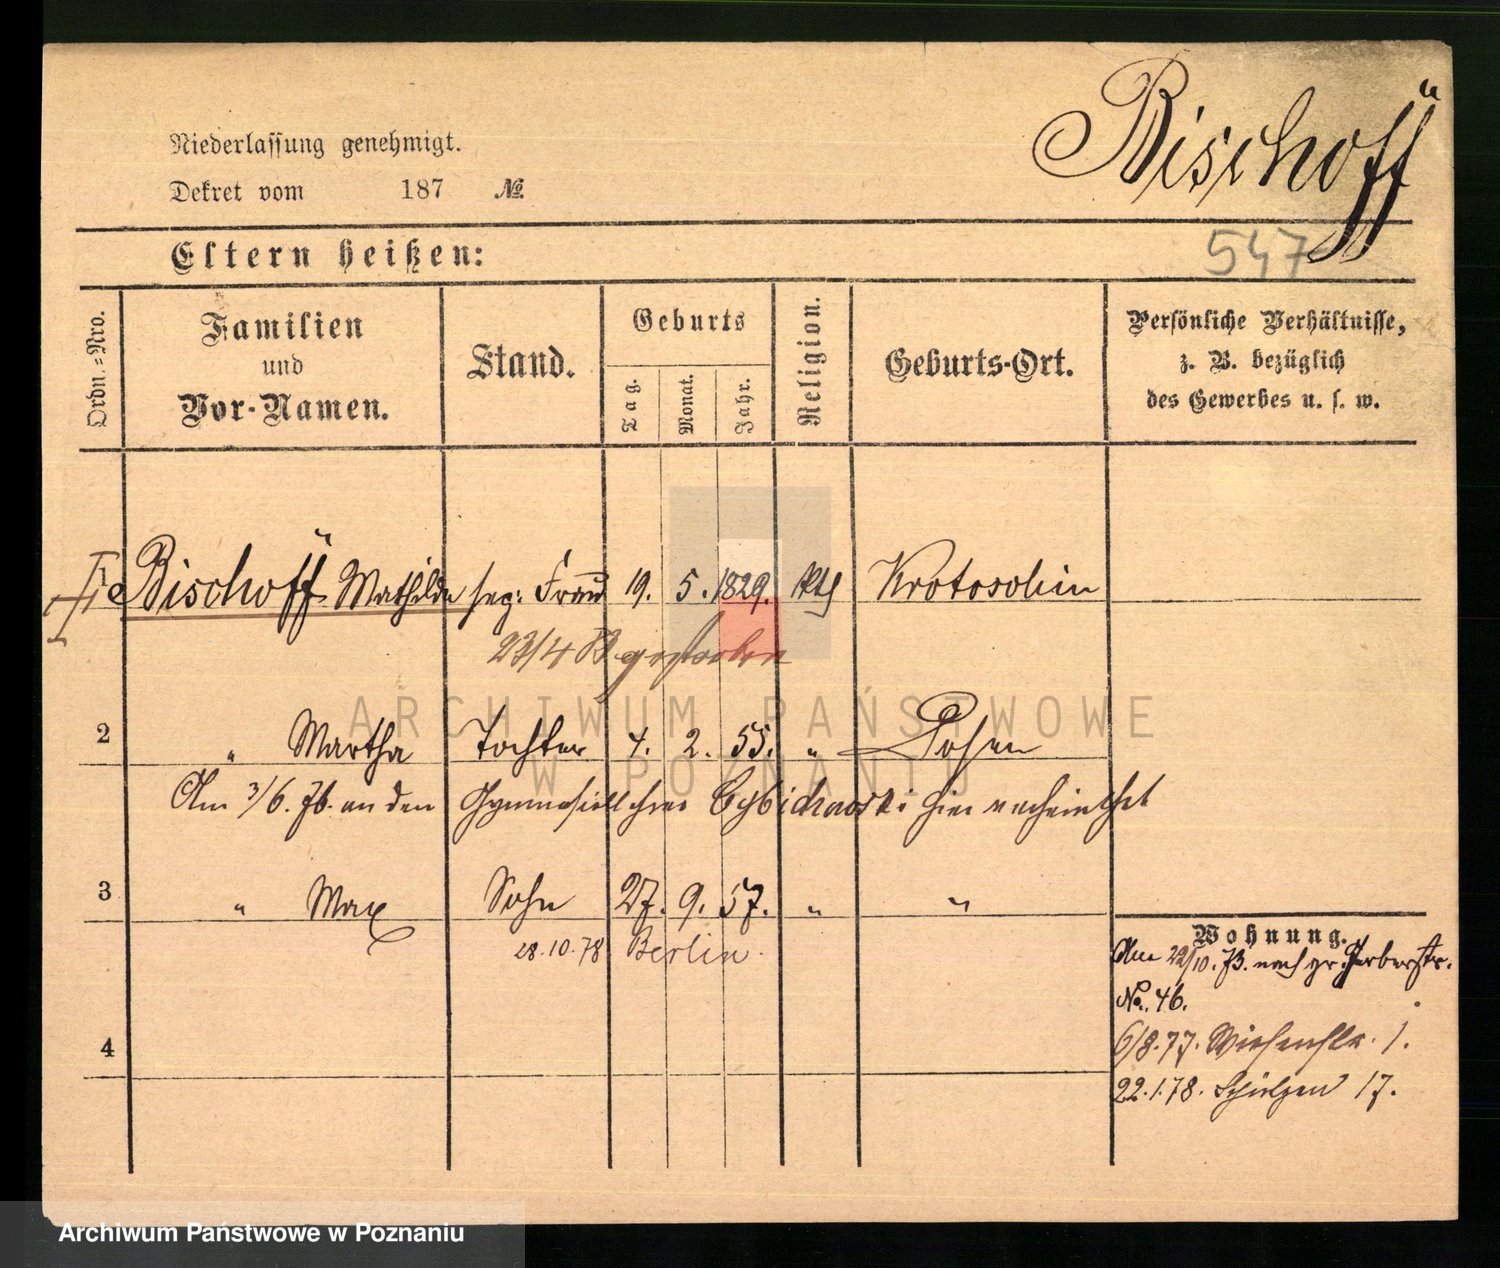 Bischoff
Niederlassung genehmigt.
Dekret vom 187 №
547
Eltern heißen:
Ordn.=Nro.
Familien
und
Vor-Namen.
Stand.
Geburts
Tag.
Monat.
Jahr.
Religion.
Geburts-Ort.
Persönliche Verhältnisse,
z. B. bezüglich
des Gewerbes u. s. w.
1 Bischoff Mathilde Frau 19. 5. 1829. Kth Krotoschin
gestorben
ARCHIWUM PAŃSTWOWE
W POZNANIU
2 " Martha Tochter 4. 2. 55. " Posen
Am 3/6. 76. an den Gymnasiallehrer hier verheirathet
3 " Max Sohn 27. 9. 57. " "
28.10.78 Berlin.
Wohnung.
Am 22/10. 73. nach gr. Gerberstr.
No. 46.
6/8.77. Wiesenstr. 1.
22.1.78. Schützen 17.
4
Archiwum Państwowe w Poznaniu